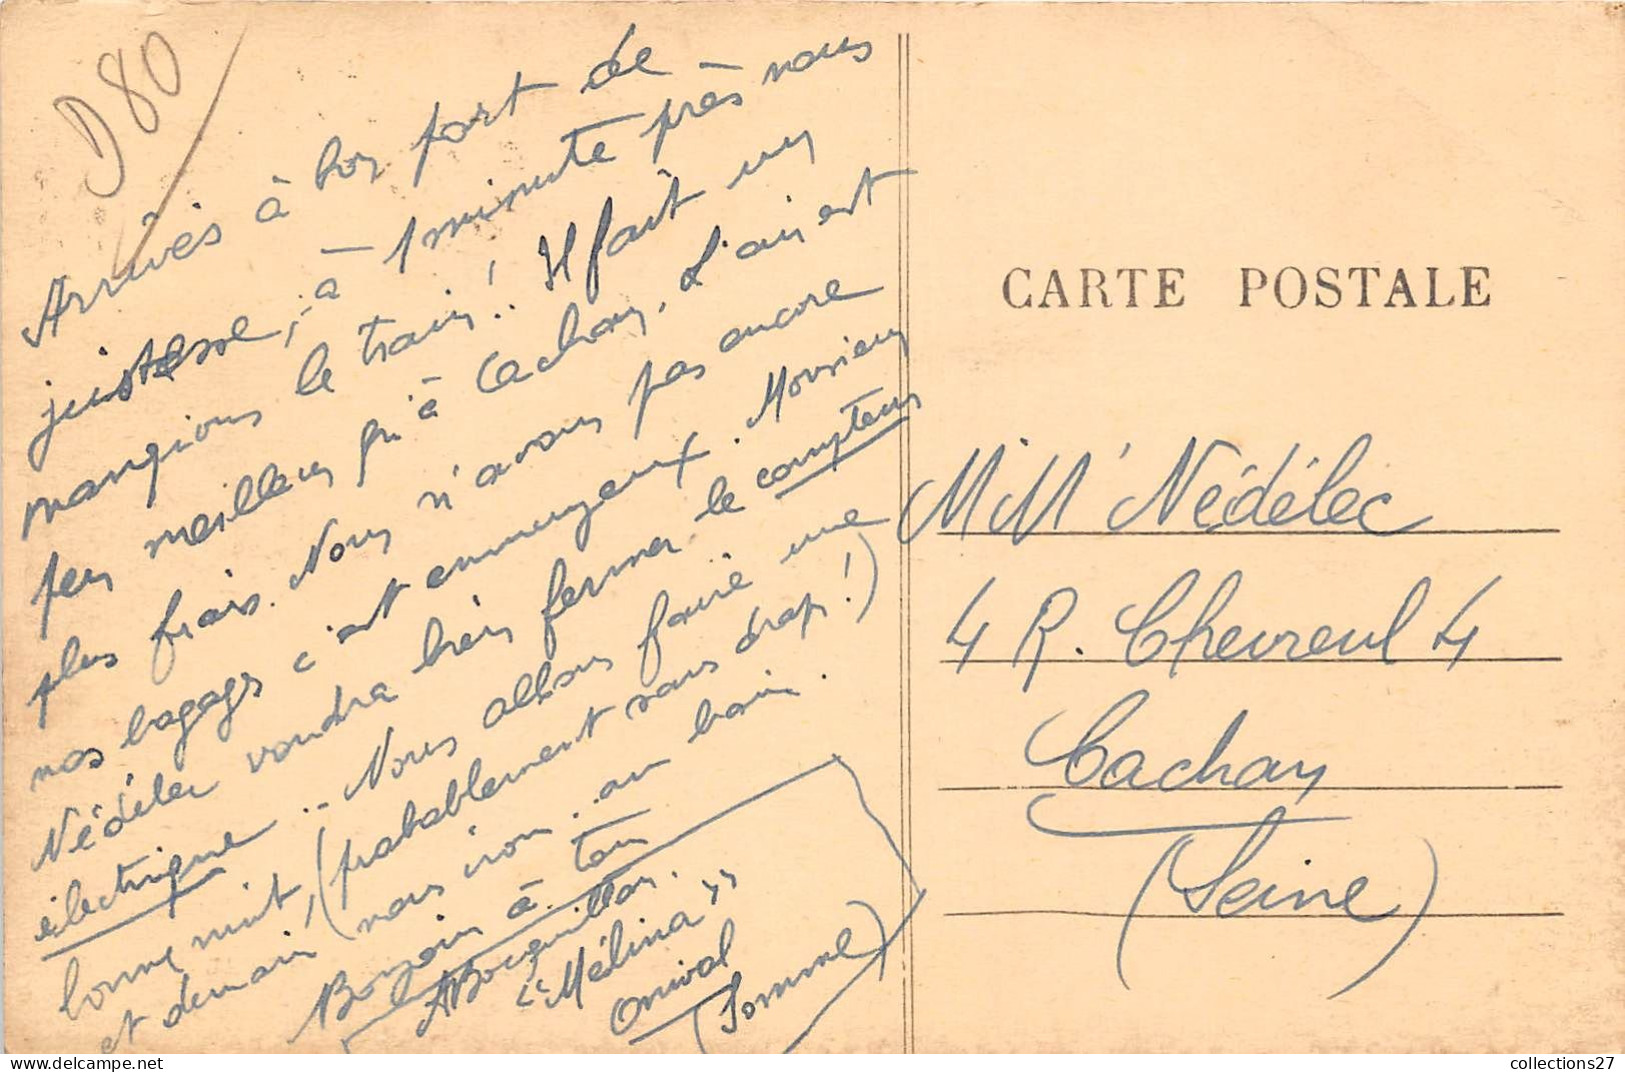 D80
Arrivés à bon port de
justesse, à 1 minute près nous
mangions le train!.. Il fait un
peu meilleur qu'à Cachan. L'air est
plus frais. Nous n'avons pas encore
nos bagages c'est ennuyeux. Monsieur
Nédélec voudra bien fermer le compteur
électrique... Nous allons faire une
bonne nuit, (probablement sans drap!)
et demain nous irons au bain.
Bonjour à tous
ABocquillon.
"Mélina"
Onival
(Somme)
CARTE POSTALE
M. M. Nédélec
4 R. Chevreul 4
Cachan
(Seine)
collections27